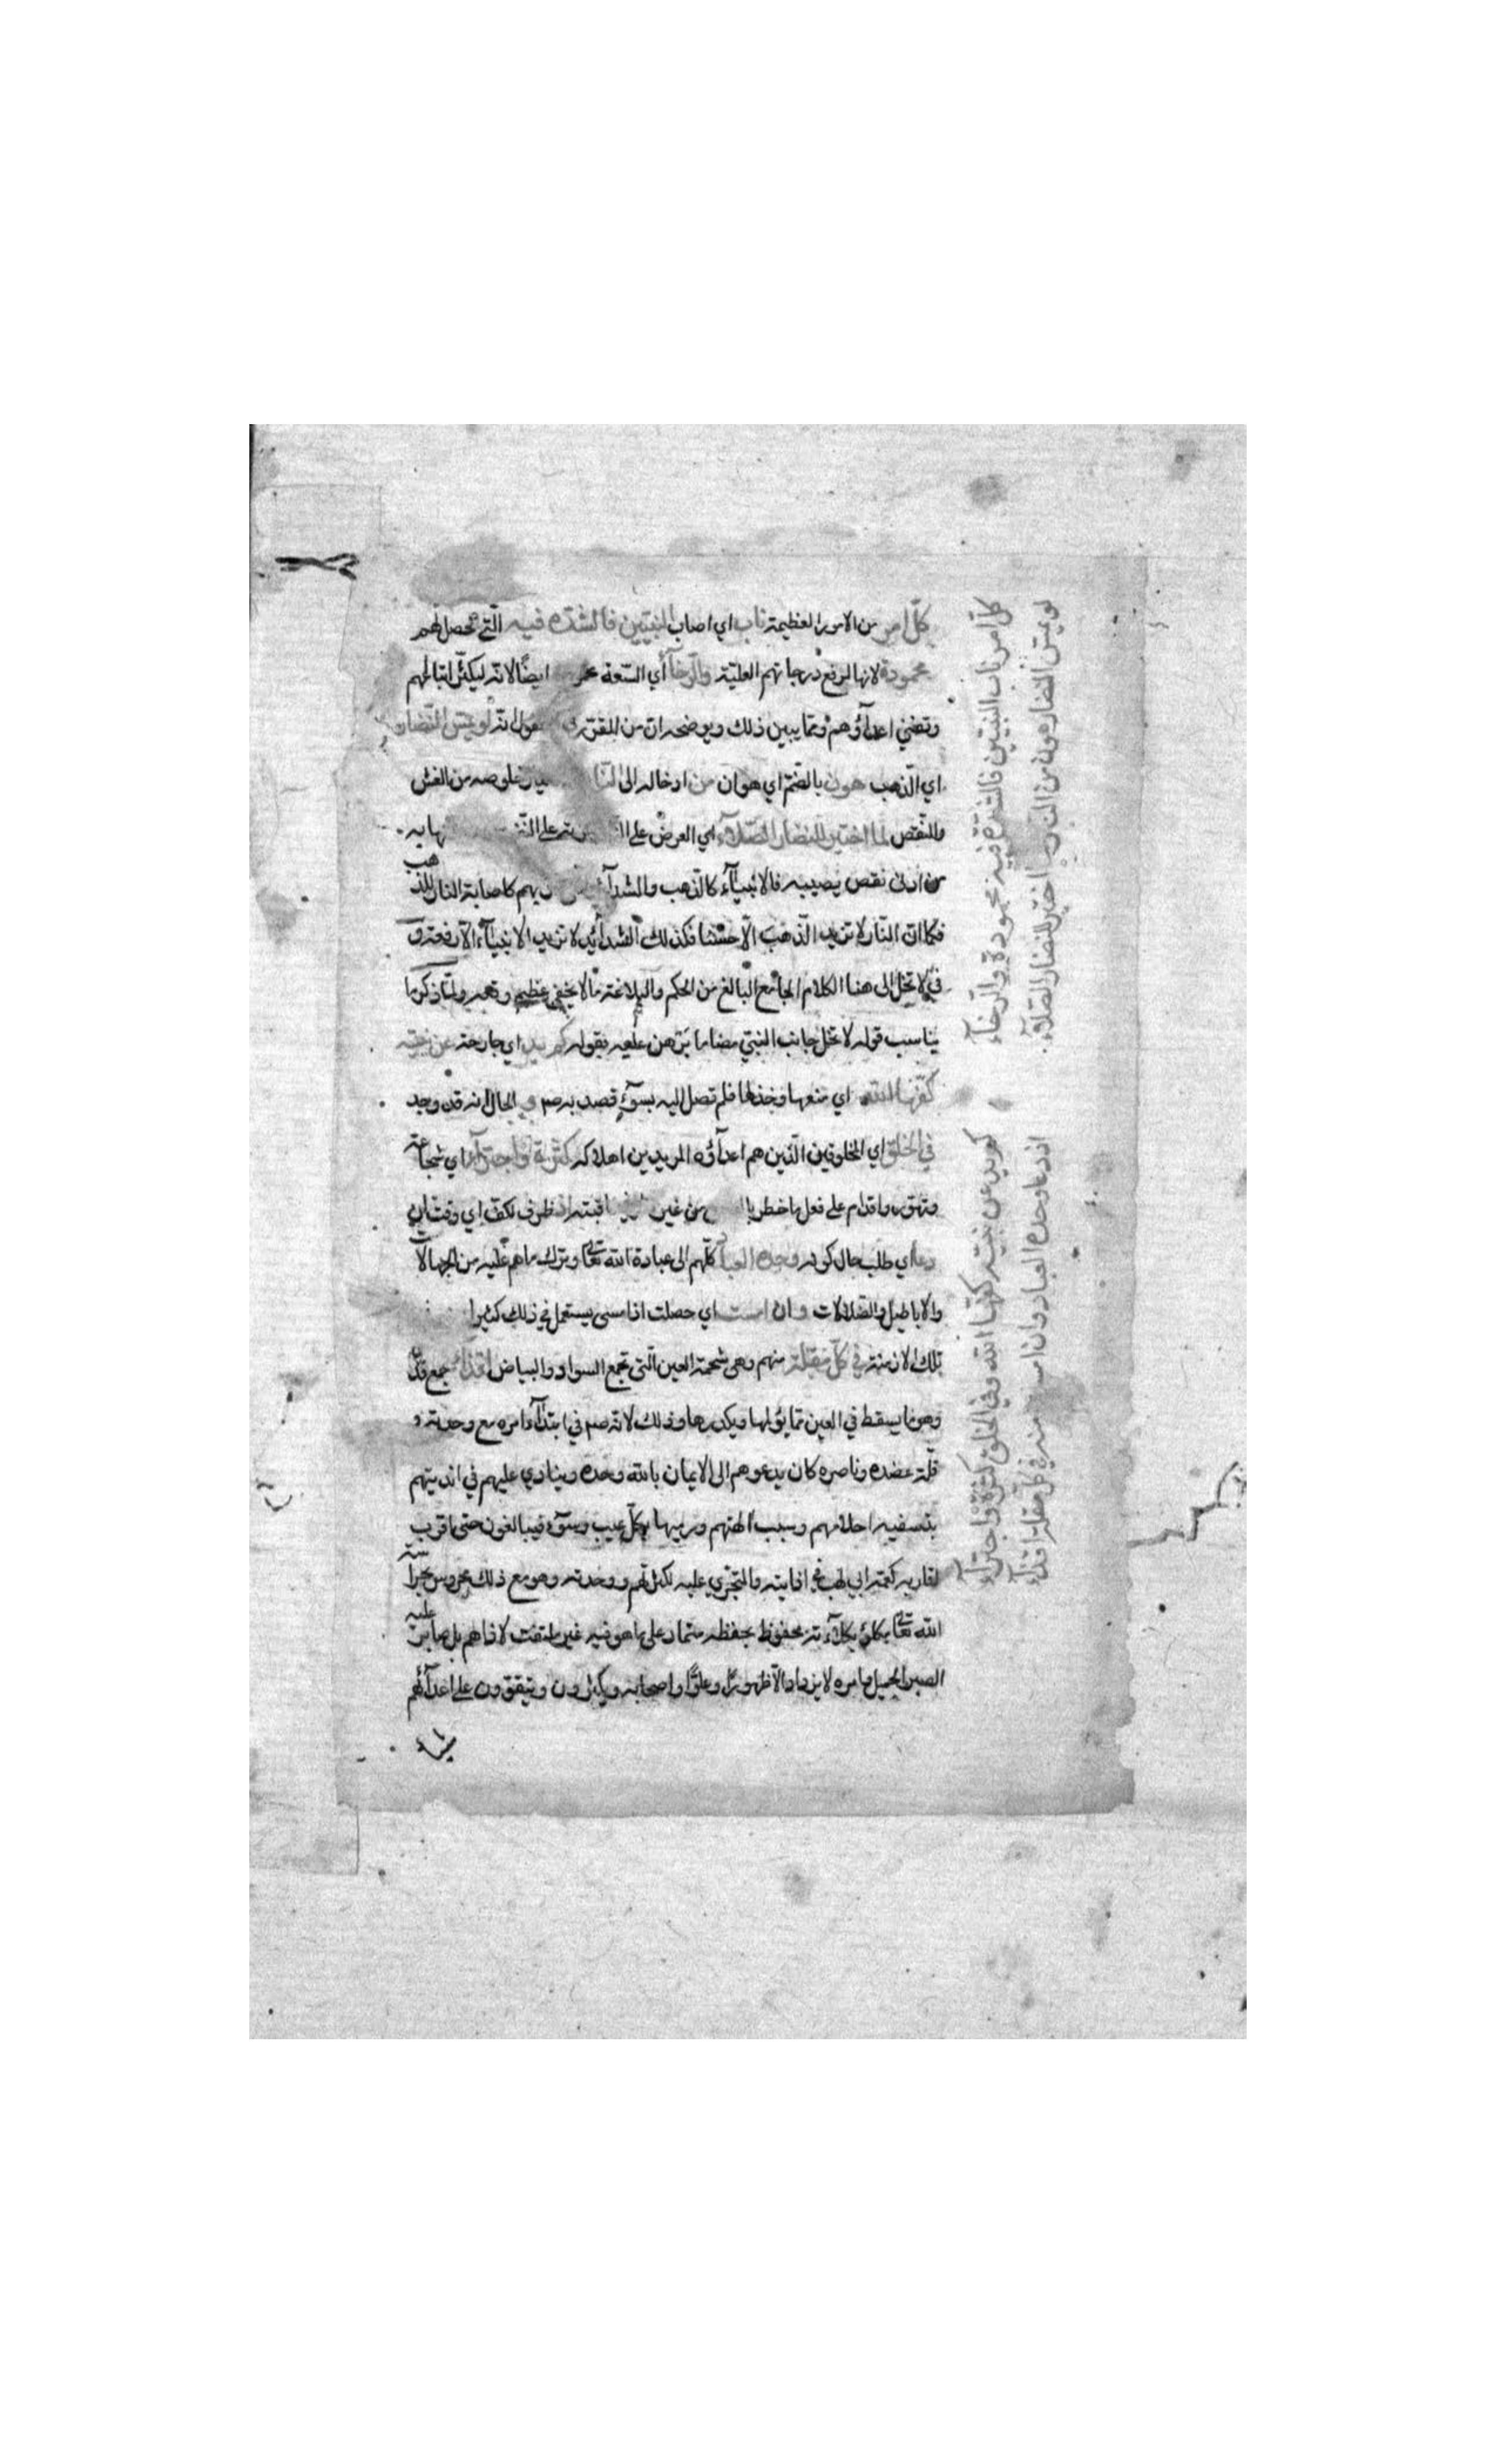 كلّ امر من الامور العظيمة ناب اي اصاب النبيّين فالشدّة فيه الّتي تحصل لهم
محمودة لانها لرفع درجاتهم العليّة والرّخآء أي السّعة ايضًا لانّه ليكثر اتباعهم
وتفني اعدآؤهم وممّا يبين ذلك ويوضحه ان من المقرّر انّه لو يمسّ النّضار
اي الذّهب هون بالضّم اي هوان من ادخاله الى النّا خلوصه من الغش
والنّقص لما اختير للنضار الصّلآء اي العرض على
من ادنى نقص يصيبه فالانبيآء كالذّهب والشدآ بهم كاصابة النار للذهب
فكما انّ النّار لا تزيد الذّهب الّا حسْنا فكذلك الشدآئد لا تزيد الانبيآء الّا رفعة و
الى هذا الكلام الجامع البالغ من الحكم والبلاغة ما لا يخفى عظيم وقعه ولمّا ذكر ما
يناسب قوله لا تخل جانب النبيّ مضاما برهن عليه بقوله كم يد اي جارحة عن نبيّه
كفّها الله اي منعها وخذلها فلم تصل اليه بسوٓء قصد به صم في الحال انه قد وجد
في الخلق اي المخلوقين الّذين هم اعدآؤه المريدين اهلاكه كثرة واجترآء اي شجاعة
وتهوّر واقدام على فعل ما خطر من غير اذ ظرف لكفّ اي وقت ان
دعا اي طلب حال كونه وحده العباد كلّهم الى عبادة الله تعا وترك ما هم عليه من الجهالا
والاباطيل والضّلالات وان امست اي حصلت اذ امسى يستعمل في ذلك كثيرا
تلك الازمنة في كلّ مقلة منهم وهي شحمة العين الّتي تجمع السواد والبياض اقذآء جمع قذى
وهو ما يسقط في العين ممّا يؤلمها ويكدرها وذلك لانّه صم في ابتدآء امره مع وحدته و
قلّة عضده وناصره كان يدعوهم الى الايمان بالله وحده وينادي عليهم في انديتهم
بتسفيه احلامهم وسبب الهتهم ورميها بكلّ عيب وسوٓء فيبالغون حتى اقرب
اقاربه كعمّه ابي لهب في اذايته والتّجرّي عليه لكثرتهم ووحدته وهو مع ذلك محروس بحراسة
الله تعا محفوظ بحفظه متماد على ما هو فيه غير ملتفت لاذاهم بل صابر عليه
الصبر الجميل وامره لا يزداد الّا ظهورًا وعلوًّا واصحابه يكثرون ويتقوّون على اعدآئهم
كلّ امر ناب النبيّين فالشدّة فيه محمودة والرّخآء
لو يمسّ النضار هون من النار لما اختير للنضار الصّلآء
كم يد عن نبيّه كفّها الله وفي الخلق كثرة واجترآء
اذ دعا وحده العباد وان امست منه في كلّ مقلة اقذآء